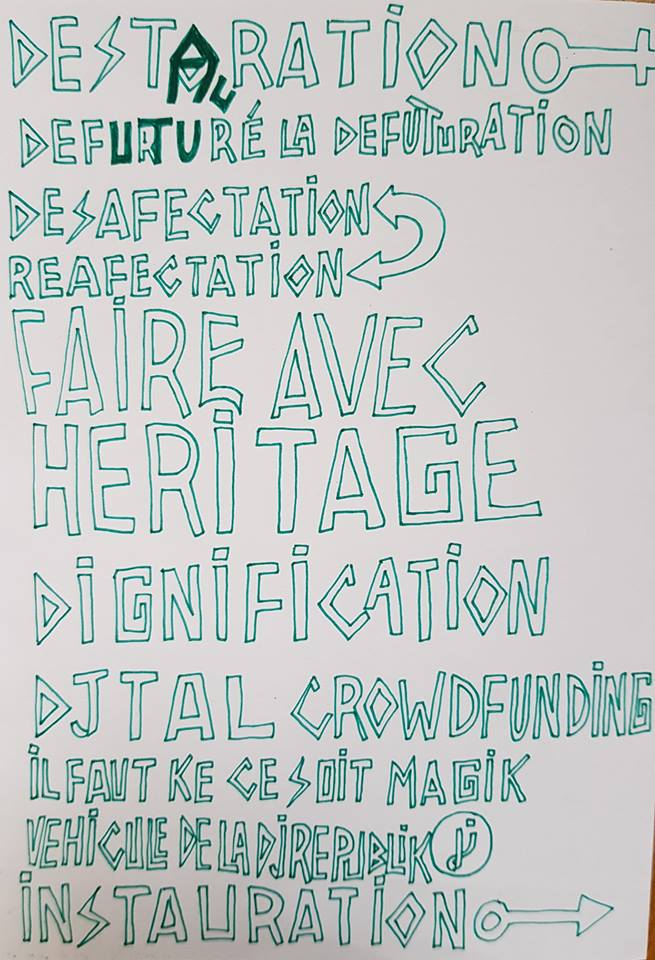 DESTAuRATION
DEFUTURÉ LA DEFUTURATION
DESAFECTATION
REAFECTATION
FAIRE AVEC
HERITAGE
DIGNIFICATION
DJTAL CROWDFUNDING
IL FAUT KE CE SOIT MAGIK
VEHICULE DE LA DJREPUBLIK dj
INSTAURATION